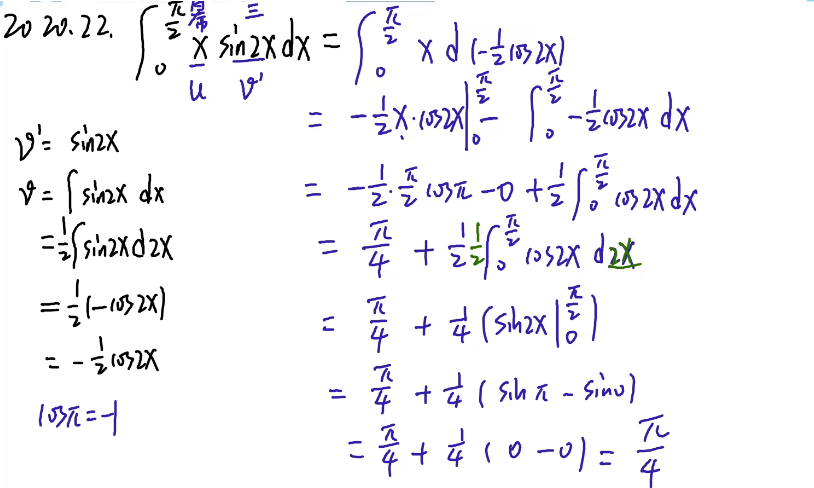 2020.22. ∫₀^(π/2) x sin2x dx = ∫₀^(π/2) x d(-1/2 cos2x)
幂 三
u v'
= -1/2 x·cos2x |₀^(π/2) - ∫₀^(π/2) -1/2 cos2x dx
= -1/2·π/2 cosπ - 0 + 1/2 ∫₀^(π/2) cos2x dx
= π/4 + 1/2 1/2 ∫₀^(π/2) cos2x d2x
= π/4 + 1/4 (sin2x |₀^(π/2))
= π/4 + 1/4 (sinπ - sin0)
= π/4 + 1/4 (0-0) = π/4
v' = sin2x
v = ∫sin2x dx
= 1/2 ∫sin2x d2x
= 1/2 (-cos2x)
= -1/2 cos2x
cosπ = -1